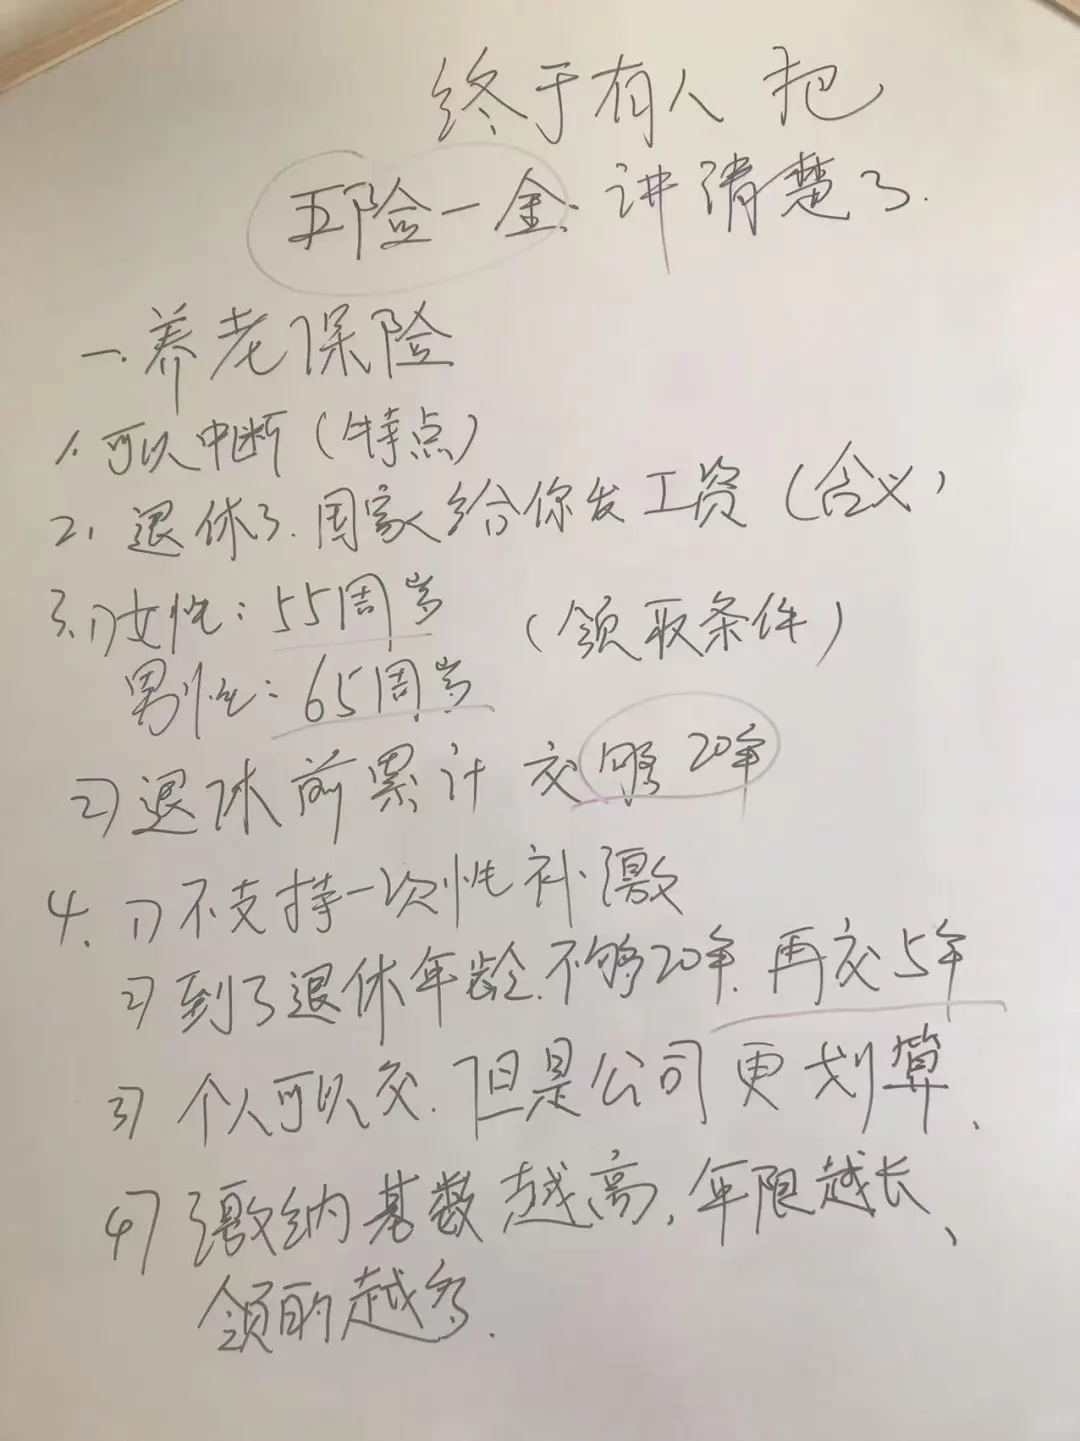 终于有人把
五险一金.讲清楚了.
一.养老保险
1.可以中断(特点)
2.退休了.国家给你发工资(含义)
3.1)女性:55周岁 (领取条件)
男性:65周岁
2)退休前累计交够20年
4.1)不支持一次性补缴
2)到了退休年龄.不够20年.再交5年
3)个人可以交.但是公司更划算、
4)缴纳基数越高.年限越长、
领的越多.